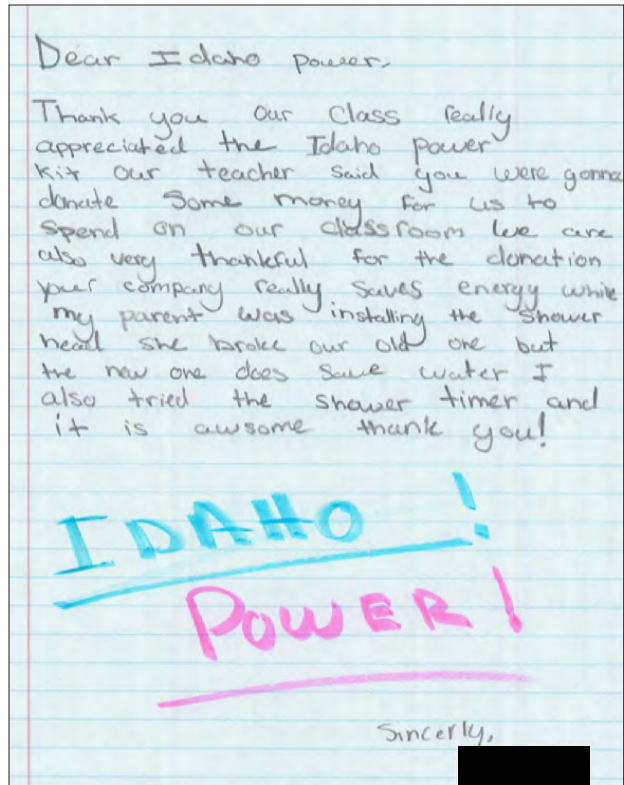 Dear Idaho power,
Thank you our Class really
appreciated the Idaho power
kit our teacher said you were gonna
donate Some money for us to
Spend on our classroom we are
also very thankful for the donation
your company really saves energy while
my parent was installing the shower
head she broke our old one but
the new one does save water I
also tried the shower timer and
it is awsome thank you!
IDAHO !
POWER!
Sincerly,